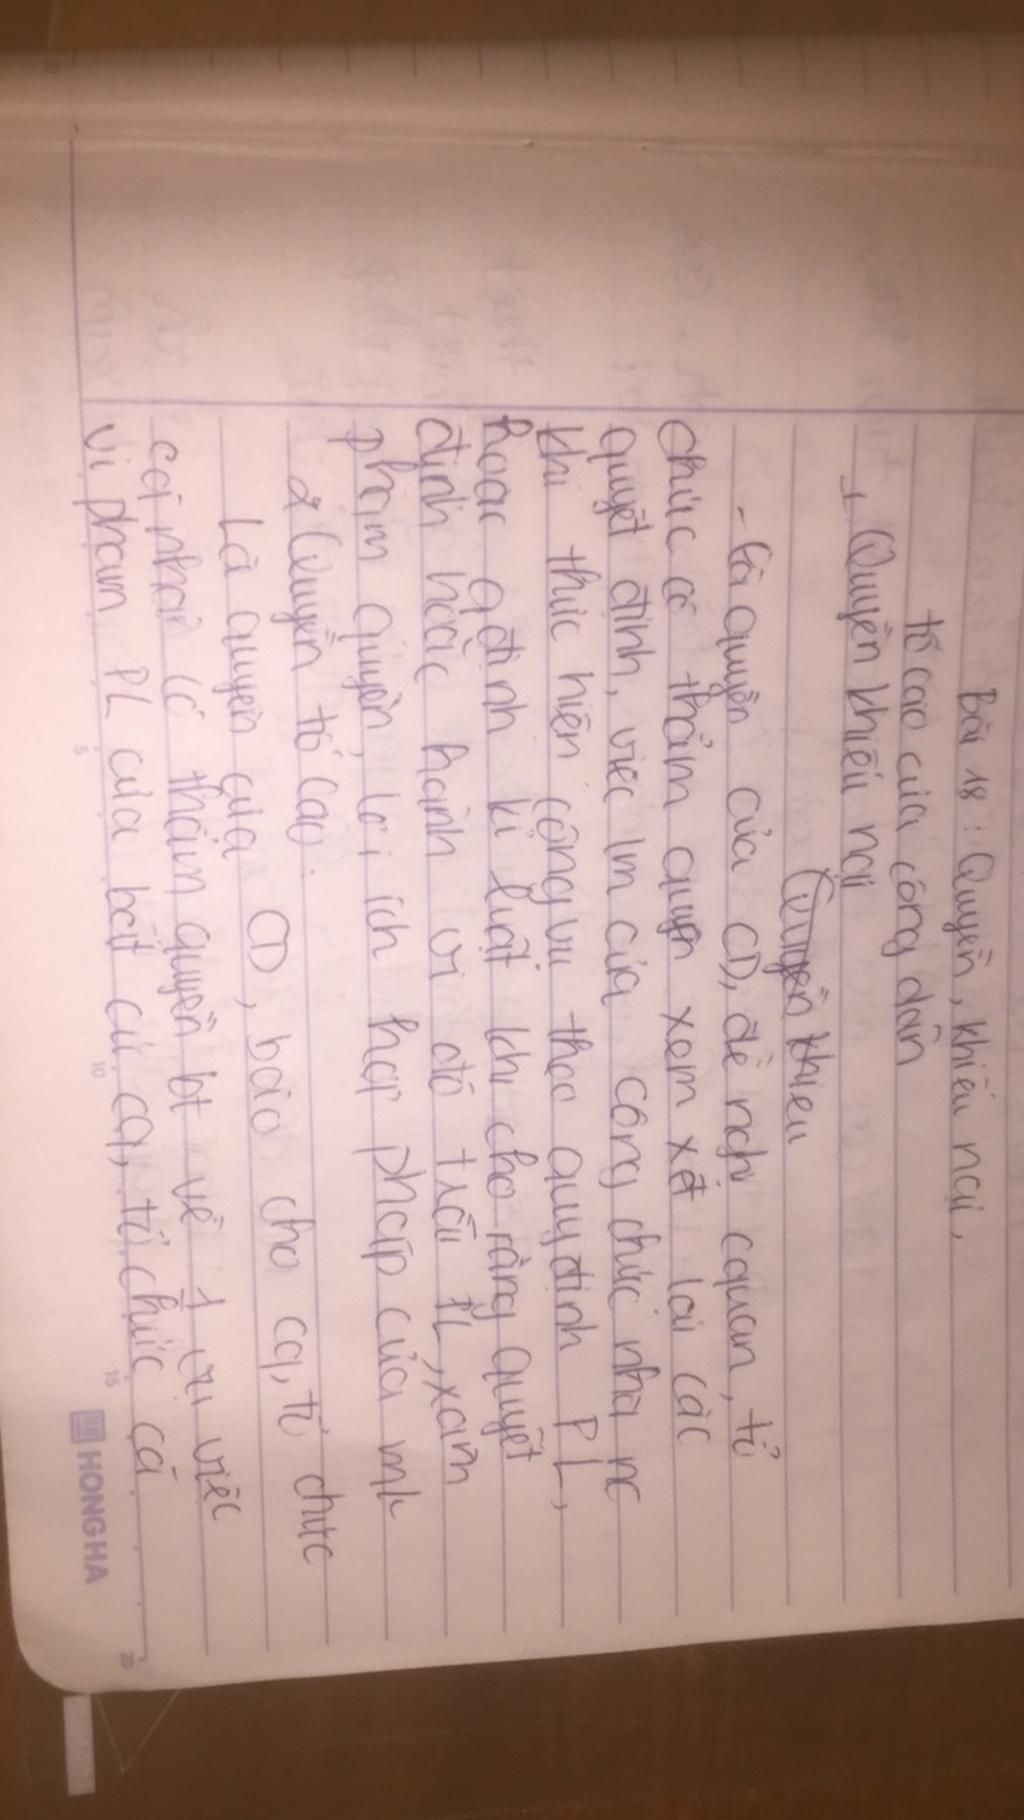 Bài 18: Quyền, khiếu nại,
tố cáo của công dân
1 Quyền khiếu nại
Quyền khiếu
- Là quyền của CD, đề nghị cquan, tổ
chức có thẩm quyền xem xét lại các
quyết định, việc lm của công chức nhà nc
khi thực hiện công vụ theo quy định PL,
hoặc qđịnh kỉ luật khi cho rằng quyết
định hoặc hành vi đó trái PL, xâm
phạm quyền, lợi ích hợp pháp của mk
2 Quyền tố cáo.
Là quyền của CD, báo cho cq, tổ chức
cá nhân có thẩm quyền bt về 1 vụ việc
vi phạm PL của bất cứ cq, tổ chức cá
5 10 15 20
HONG HA